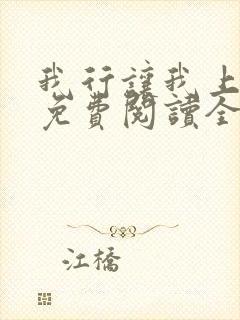 我行讓我上
免費閱讀全
江橋